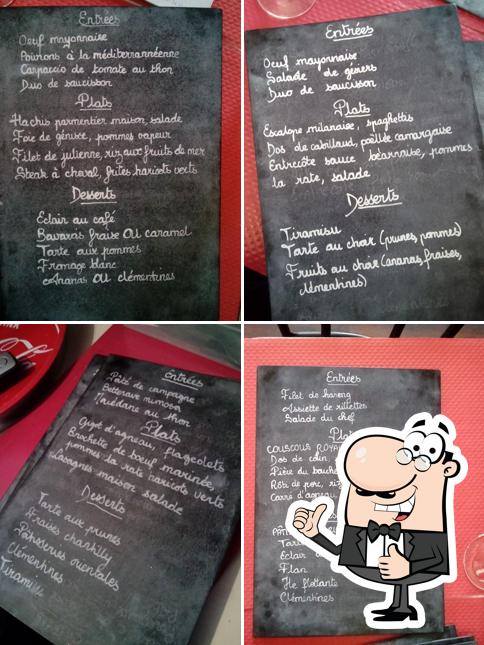 Entrées
Oeuf mayonnaise
Poivrons à la méditerrannéenne
Carpaccio de tomate au thon
Duo de saucisson
Plats
Hachis parmentier maison, salade
Foie de génisse, pommes vapeur
Filet de julienne, riz aux fruits de mer
Steak à cheval, frites haricots verts
Desserts
Eclair au café
Bavarois fraise OU caramel
Tarte aux pommes
Fromage blanc
Ananas OU clémentines
Entrées
Oeuf mayonnaise
Salade de gésiers
Duo de saucisson
Plats
Escalope milanaise, spaghettis
Dos de cabillaud, poêlée camarguaise
Entrecôte sauce béarnaise, pommes
la rate, salade
Desserts
Tiramisu
Tarte au choix (prunes, pommes)
Fruits au choix (ananas, fraises,
clémentines)
Entrées
Pâté de campagne
Betterave mimosa
Macédoine au thon
Plats
Gigot d'agneau, flageolets
Brochette de boeuf marinée,
pommes la rate haricots verts
Lasagnes maison salade
Desserts
Tarte aux prunes
Fraises chantilly
Pâtisseries orientales
Clémentines
Tiramisu
Entrées
Filet de hareng
Assiette de rillettes
Salade du chef
COUSCOUS
Dos de colin
Pièce du
Rôti de porc, riz
Carré d'agneau
Eclair
Flan
Ile flottante
Clémentines